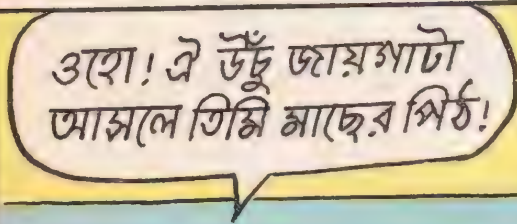 ওহো! ঐ উঁচু জায়গাটা
আসলে তিমি মাছের পিঠ!